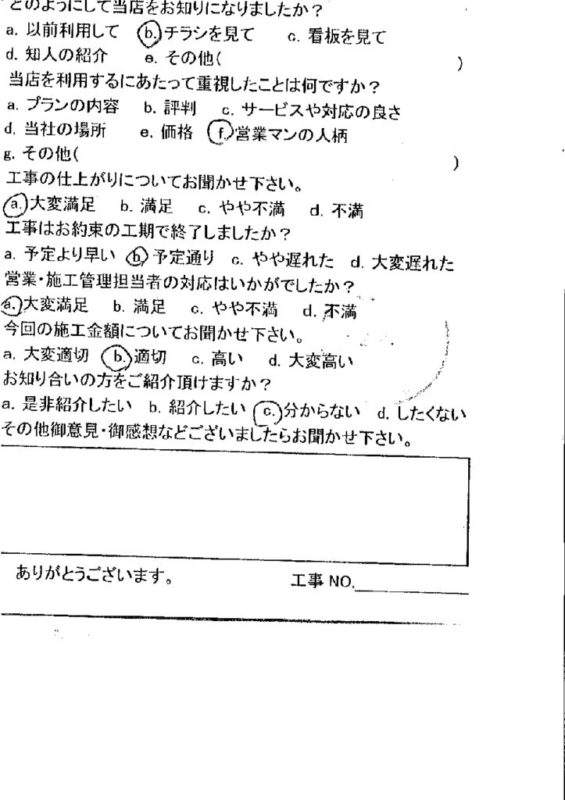 どのようにして当店をお知りになりましたか？
a. 以前利用して b. チラシを見て c. 看板を見て
d. 知人の紹介 e. その他( )
当店を利用するにあたって重視したことは何ですか？
a. プランの内容 b. 評判 c. サービスや対応の良さ
d. 当社の場所 e. 価格 f. 営業マンの人柄
g. その他( )
工事の仕上がりについてお聞かせ下さい。
a. 大変満足 b. 満足 c. やや不満 d. 不満
工事はお約束の工期で終了しましたか？
a. 予定より早い b. 予定通り c. やや遅れた d. 大変遅れた
営業・施工管理担当者の対応はいかがでしたか？
a. 大変満足 b. 満足 c. やや不満 d. 不満
今回の施工金額についてお聞かせ下さい。
a. 大変適切 b. 適切 c. 高い d. 大変高い
お知り合いの方をご紹介頂けますか？
a. 是非紹介したい b. 紹介したい c. 分からない d. したくない
その他御意見・御感想などございましたらお聞かせ下さい。
ありがとうございます。 工事 NO.